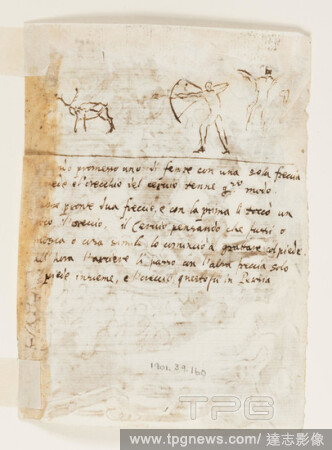 promesso uno di ferire con una sola freccia
piede e l'orecchio del cervio tenne modo.
pronte dua freccie, e con la prima li toccò un
poco l'orecio. il Cervio pensando che fussi o
mosca o cosa simile, lo cominciò a grattare col piede.
all'hora l'Arciere li passò con l'altra freccia solo
il piede insieme, e l'orecio questo fu in Persia
1901.39.160
TPG
www.tpgnews.com/ 達志影像